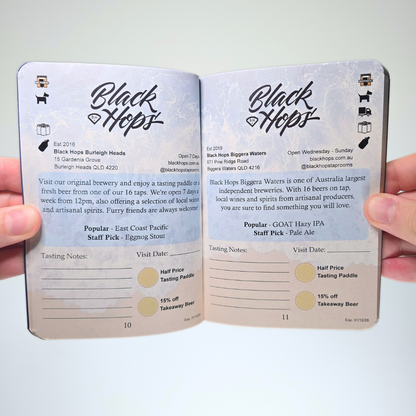 Black
Hops
Est 2016
Black Hops Burleigh Heads
15 Gardenia Grove
Burleigh Heads QLD 4220
Open 7 Days
blackhops.com.au
@blackhopstaprooms
Visit our original brewery and enjoy a tasting paddle or a
fresh beer from one of our 16 taps. We're open 7 days a
week from 12pm, also offering a selection of local wines
and artisanal spirits. Furry friends are always welcome!
Popular - East Coast Pacific
Staff Pick - Eggnog Stout
Tasting Notes:
Visit Date:
Half Price
Tasting Paddle
15% off
Takeaway Beer
10
Black
Hops
Est 2019
Black Hops Biggera Waters
Pine Ridge Road
Biggera Waters QLD 4216
Open Wednesday - Sunday
blackhops.com.au
@blackhopstaprooms
Black Hops Biggera Waters is one of Australia largest
independent breweries. With 16 beers on tap,
local wines and spirits from artisanal producers,
you are sure to find something you will love.
Popular - GOAT Hazy IPA
Staff Pick - Pale Ale
Tasting Notes:
Visit Date:
Half Price
Tasting Paddle
15% off
Takeaway Beer
11